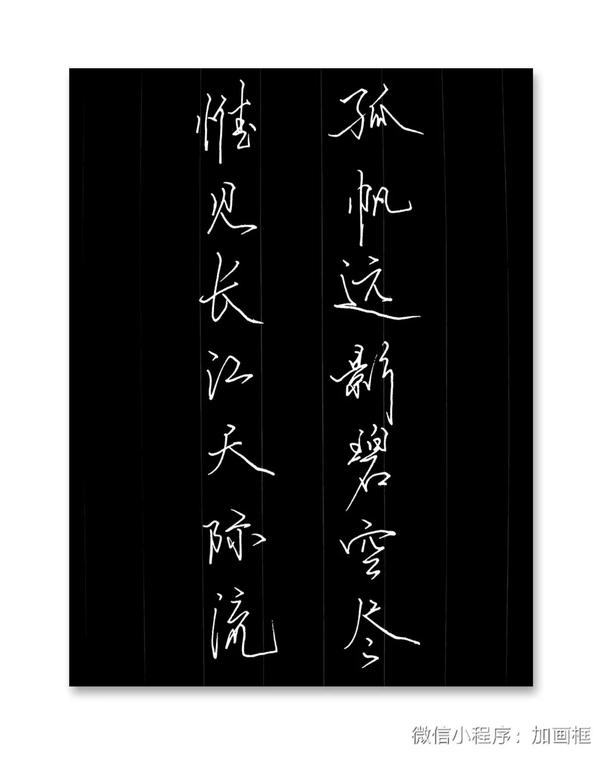 孤帆远影碧空尽
惟见长江天际流
微信小程序：加画框